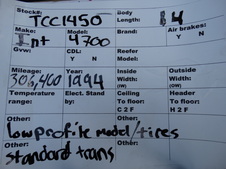 Stock#: TCC1450 Body Length: 84
Make: Int Model: 4700 Air brakes: Y N
Gvw: CDL: Y N Reefer Model:
Mileage: 306,460 Year: 1994 Inside Width: (IW) Outside Width: (OW)
Temperature range: Elect. Stand by: Ceiling To floor: C 2 F Header To floor: H 2 F
Other: low profile model/tires Other:
Other: standard trans Other: